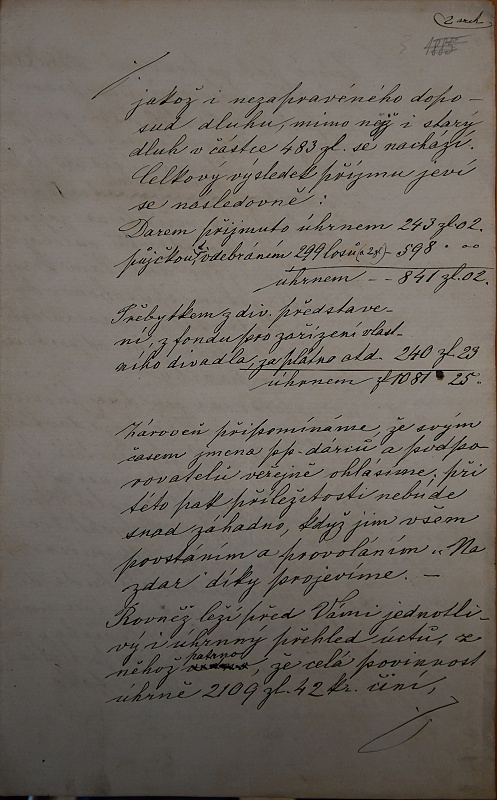 2 arch
1885
jakož i nezapraveného dopo-
sud dluhu, mimo nějž i starý
dluh v částce 483 zl. se nachází.
Celkový výsledek příjmu jeví
se následovně:
Darem přijmuto úhrnem 243 zl 02.
půjčkou, odebráním 299 losů (a 2 zl) - 598 " "
úhrnem - - 841 zl. 02.
Přebytkem z div. představe-
ní, z fondu pro zařízení vlast-
ního divadla, za plátno atd. 240 zl 23
úhrnem f 1081 25.
Zároveň připomínáme, že svým
časem jmena pp. dárců a podpo-
rovatelů veřejně ohlásíme, při
této pak příležitosti nebude
snad záhadno, když jim všem
povstáním a provoláním „Na
zdar" díky projevíme. -
Rovněž leží před Vámi jednotli-
vý i úhrnný přehled účtů, z
něhož patrno, že celá povinnost
úhrně 2109 zl. 42 kr. činí,